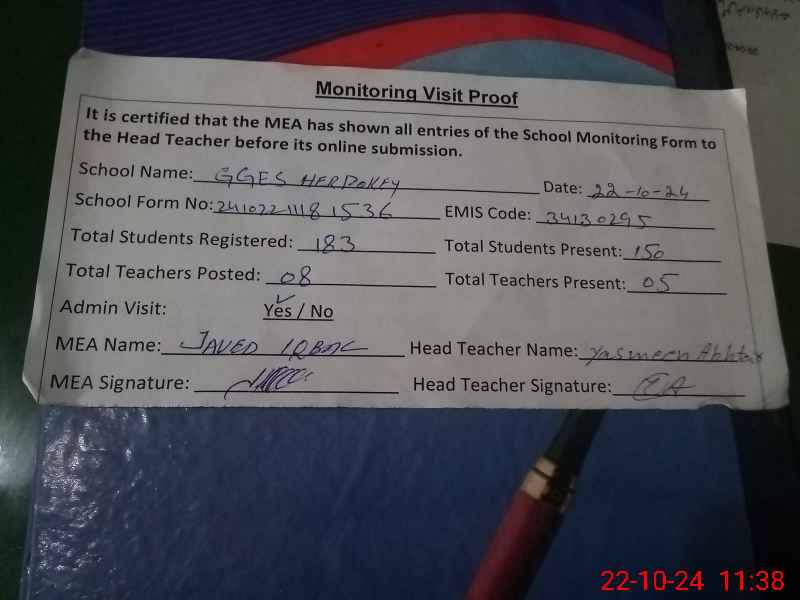 Monitoring Visit Proof
It is certified that the MEA has shown all entries of the School Monitoring Form to
the Head Teacher before its online submission.
School Name: GGES HERDOKEY Date: 22-10-24
School Form No: 2410221118 1536 EMIS Code: 34130295
Total Students Registered: 183 Total Students Present: 150
Total Teachers Posted: 08 Total Teachers Present: 05
Admin Visit: Yes / No
MEA Name: JAVED IQBAL Head Teacher Name: Yasmeen Akhtar
MEA Signature: Head Teacher Signature:
22-10-24 11:38